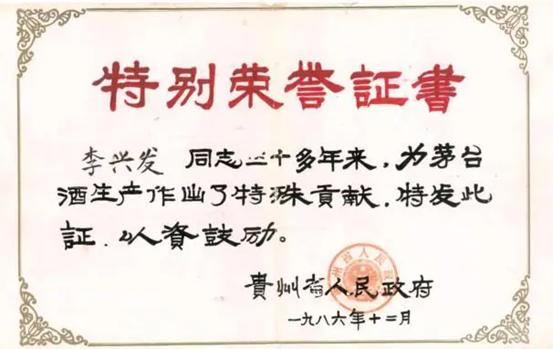 特别荣誉证书
李兴发 同志三十多年来，为茅台
酒生产作出了特殊贡献，特发此
证，以资鼓励。
贵州省人民政府
一九八六年十二月